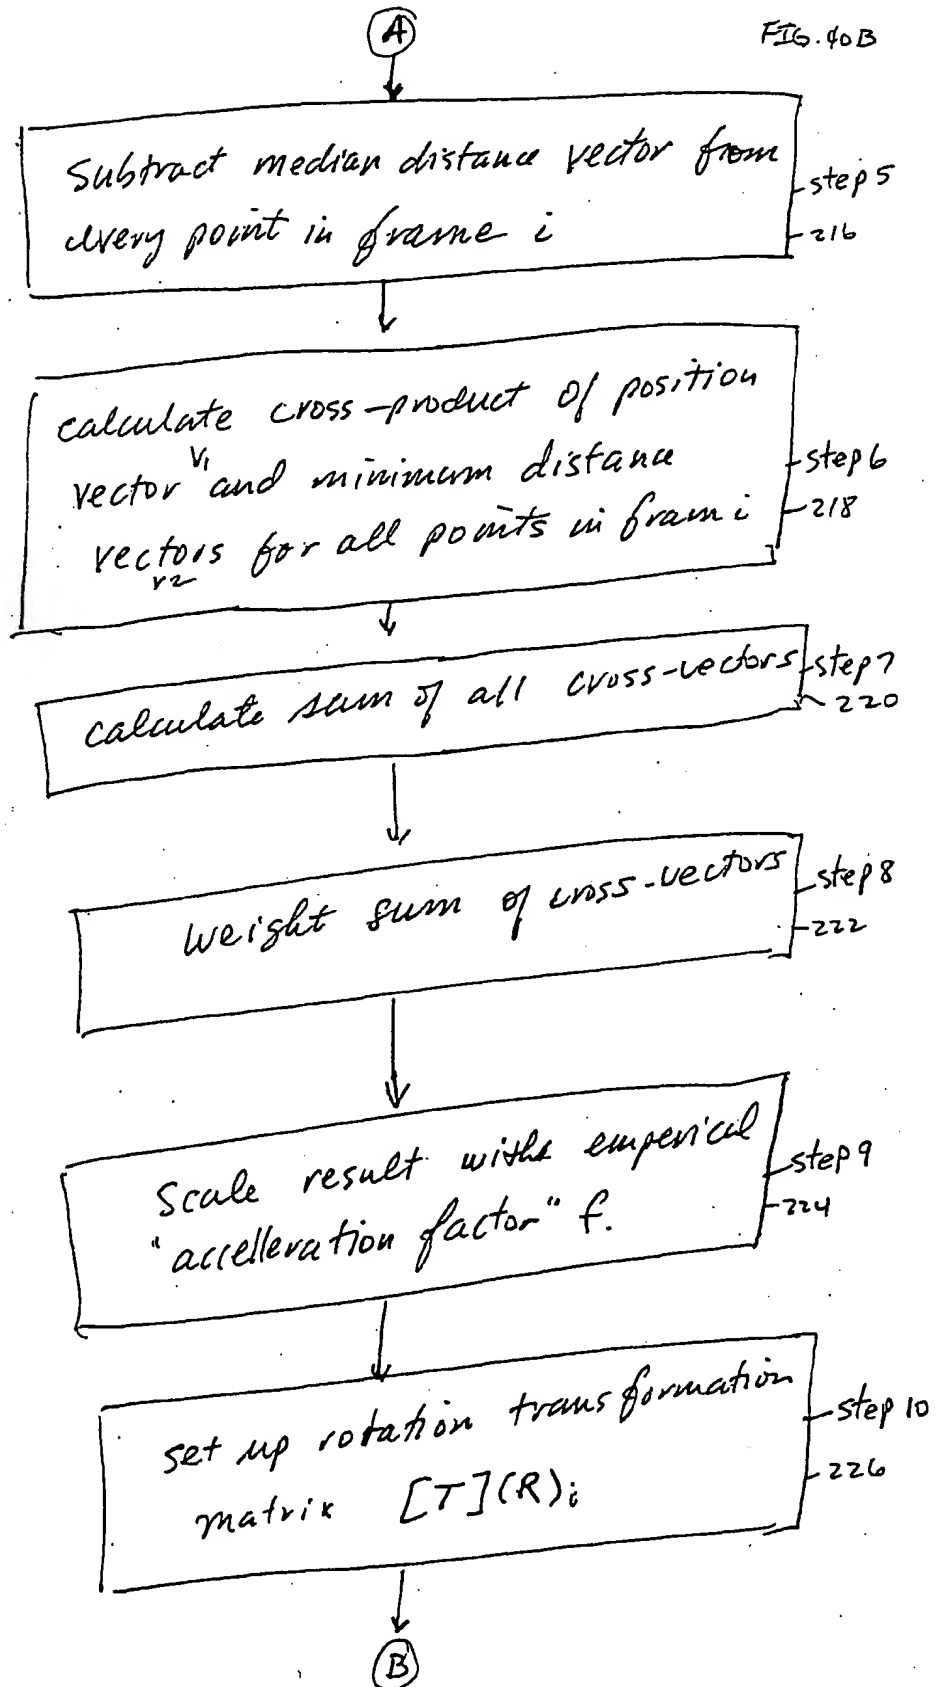 A
FIG. 40B
Subtract median distance vector from
every point in frame i
step 5
216
calculate cross-product of position
vector V1 and minimum distance
vectors v2 for all points in fram i
step 6
218
calculate sum of all cross-vectors
step 7
220
weight sum of cross-vectors
step 8
222
Scale result with emperical
"accelleration factor" f.
step 9
224
set up rotation transformation
matrix [T](R)i
step 10
226
B